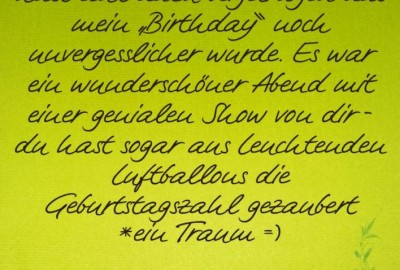 mein „Birthday“ noch
unvergesslicher wurde. Es war
ein wunderschöner Abend mit
einer genialen Show von dir-
du hast sogar aus leuchtenden
Luftballons die
Geburtstagszahl gezaubert
*ein Traum =)